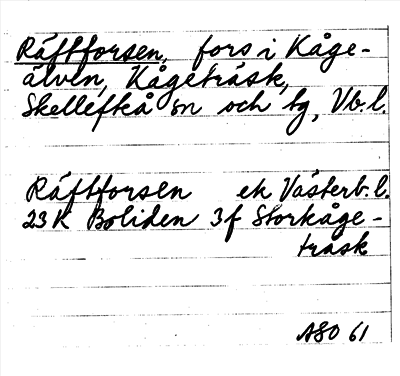 Räftforsen, fors i Kåge-
älven, Kågeträsk,
Skellefteå sn och tg, Vb. l.
Räftforsen ek Västerb. l.
23K Boliden 3f Storkåge-
träsk
ASO 61